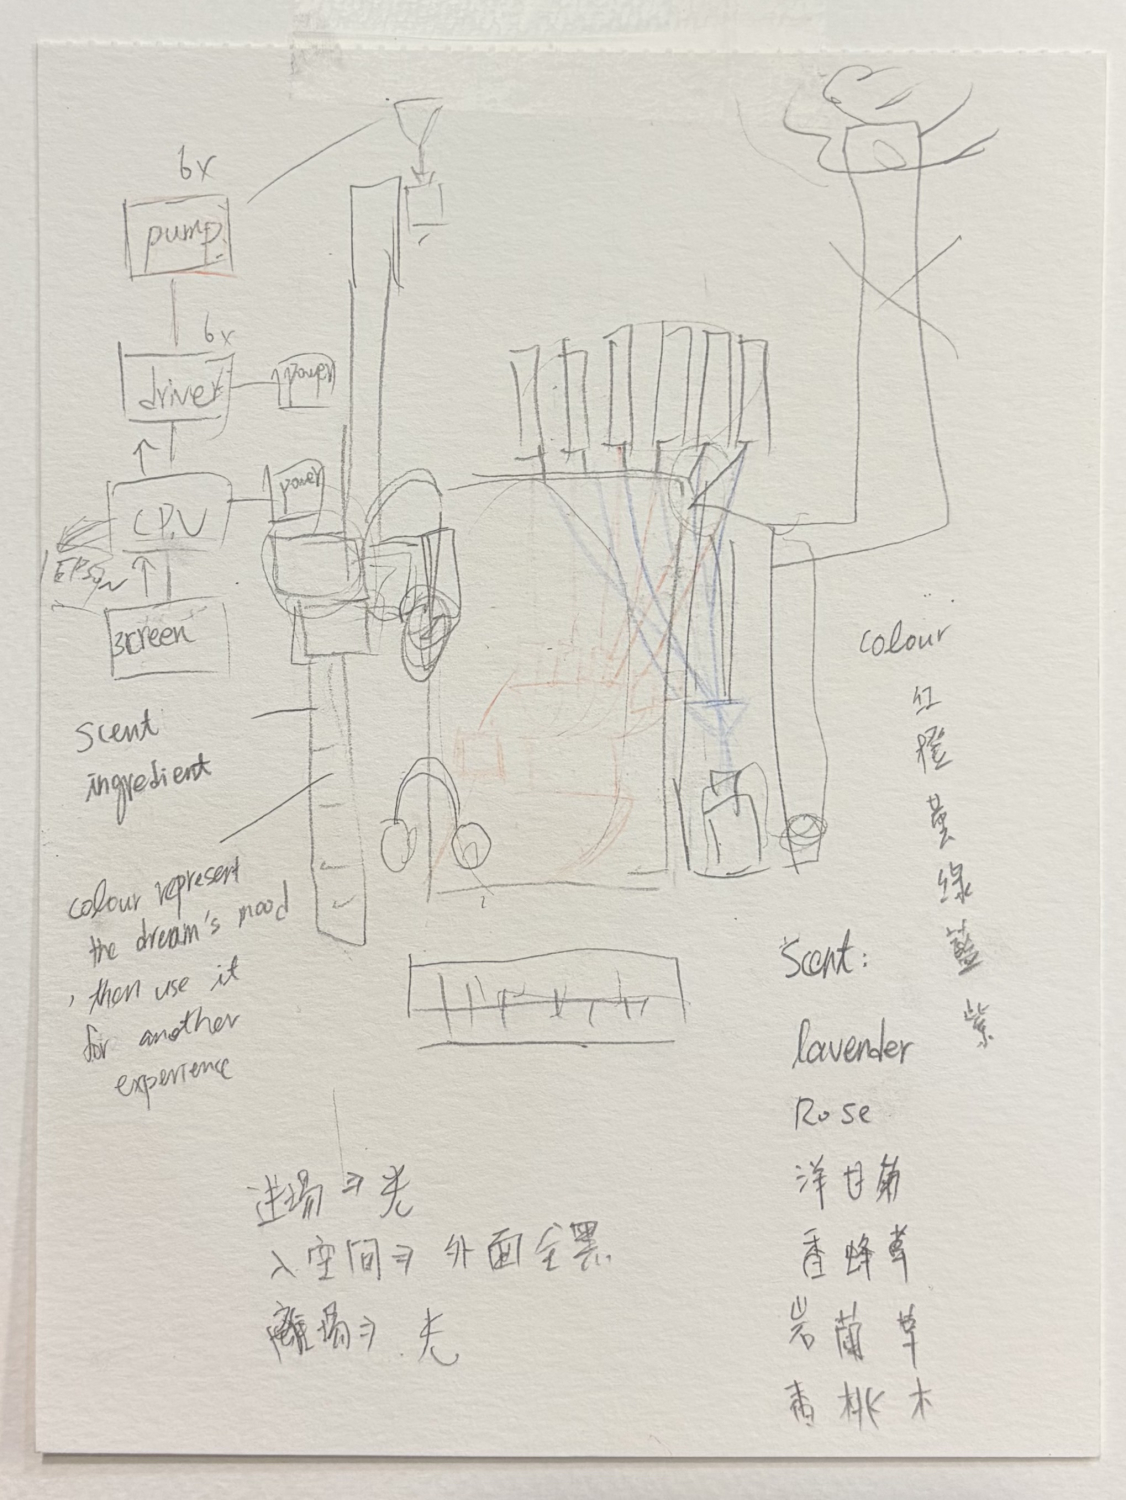 6x
pump
6x
driver
power
CPU
power
screen
scent
ingredient
colour represent
the dream's mood
, then use it
for another
experience
colour
红
橙
黄
綠
藍
紫
Scent:
lavender
Rose
洋甘菊
香蜂草
岩蘭草
香桃木
进場⇒光
入空间⇒外面全黑
離場⇒光